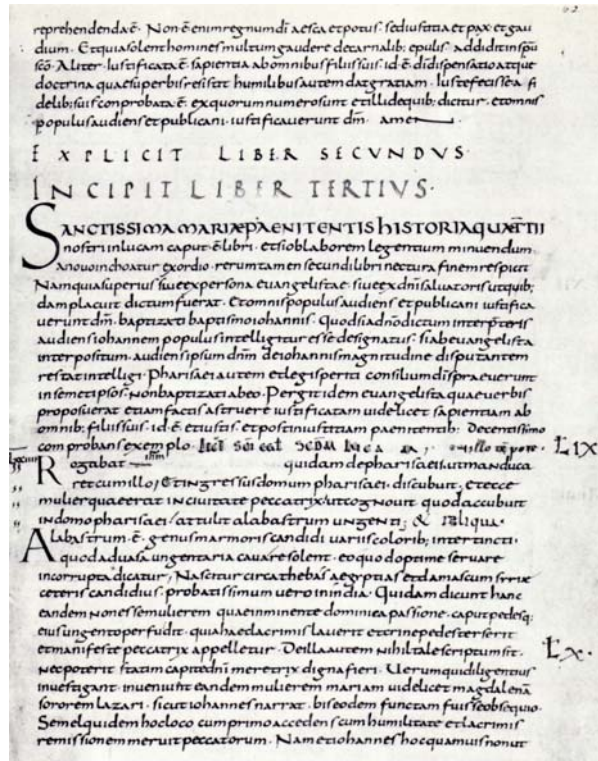 reprehendenda ē· Non ē enim regnum dī aesca et potus· sed iustitia et pax et gau
dium· Et quia solent homines multum gaudere de carnalib; epulis· addidit in spū
scō· Aliter· Iustificata ē sapientia ab omnibus filiis suis· id ē dī dispensatio atque
doctrina quae superbis resistit humilibus autem dat gratiam· Iuste fecisse a fi
delib; suis comprobata ē· ex quorum numero sunt et illi de quib; dicitur· et omnis
populus audiens et publicani· iustificauerunt dm̄· amen
EXPLICIT LIBER SECVNDVS·
INCIPIT LIBER TERTIVS·
SANCTISSIMA MARIAE PAENITENTIS HISTORIA QUAE TII
nostri in lucam caput ē libri· etsi ob laborem legentium minuendum·
a nouo inchoatur exordio· rerum tamen secundi libri nectura finem respicit
Nam quia superius siue ex persona euangelistae· siue ex dn̄i saluatoris ut quib;
dam placuit dictum fuerat· Et omnis populus audiens et publicani iustifica
uerunt dm̄· baptizati baptismo iohannis· Quod si ad nō dictum interp̄teris
audiens iohannem populus intelligitur esse designatus· si ab euangelista
interpositum· audiens ipsum dnm̄ de iohannis magnitudine disputantem
restat intelligi· Pharisaei autem et legis periti consilium dī spraeuerunt
in semet ipsos· non baptizati ab eo· Pergit idem euangelista quae uerbis
proposuerat etiam factis astruere iustificatam uidelicet sapientiam ab
omnib; filiis suis· id ē· et iustis· et post iniustitiam paenitentib; Decentissimo
comprobans exemplo· LIX
Rogabat quidam de pharisaeis· ut manduca
ret cum illo; Et ingressus domum pharisaei· discubuit· et ecce
mulier quae erat in ciuitate peccatrix· ut cognouit quod accubuit
in domo pharisaei· attulit alabastrum ungenti; & reliqua·
Alabastrum· ē· genus marmoris candidi uariis colorib; intertincti·
quod ad uasa ungentaria cauare solent· eo quod optime seruare
incorrupta dicatur; Nascitur circa thebas aegyptias et damascum syriae
ceteris candidius· probatissimum uero in india· Quidam dicunt hanc
eandem non esse mulierem quae inminente dominica passione· caput pedesq;
eius ungento perfudit· quia haec lacrimis lauerit et crine pedes terserit
et manifeste peccatrix appelletur· De illa autem nihil tale scriptum sit·
nec poterit statim capite dn̄i meretrix digna fieri· Uerum qui diligentius LX·
inuestigant· inueniunt eandem mulierem mariam uidelicet magdalenā
sororem lazari· sicut iohannes narrat· bis eodem functam fuisse obsequio·
Semel quidem hoc loco cum primo accedens cum humilitate et lacrimis
remissionem meruit peccatorum· Nam et iohannes hoc quamuis non ut